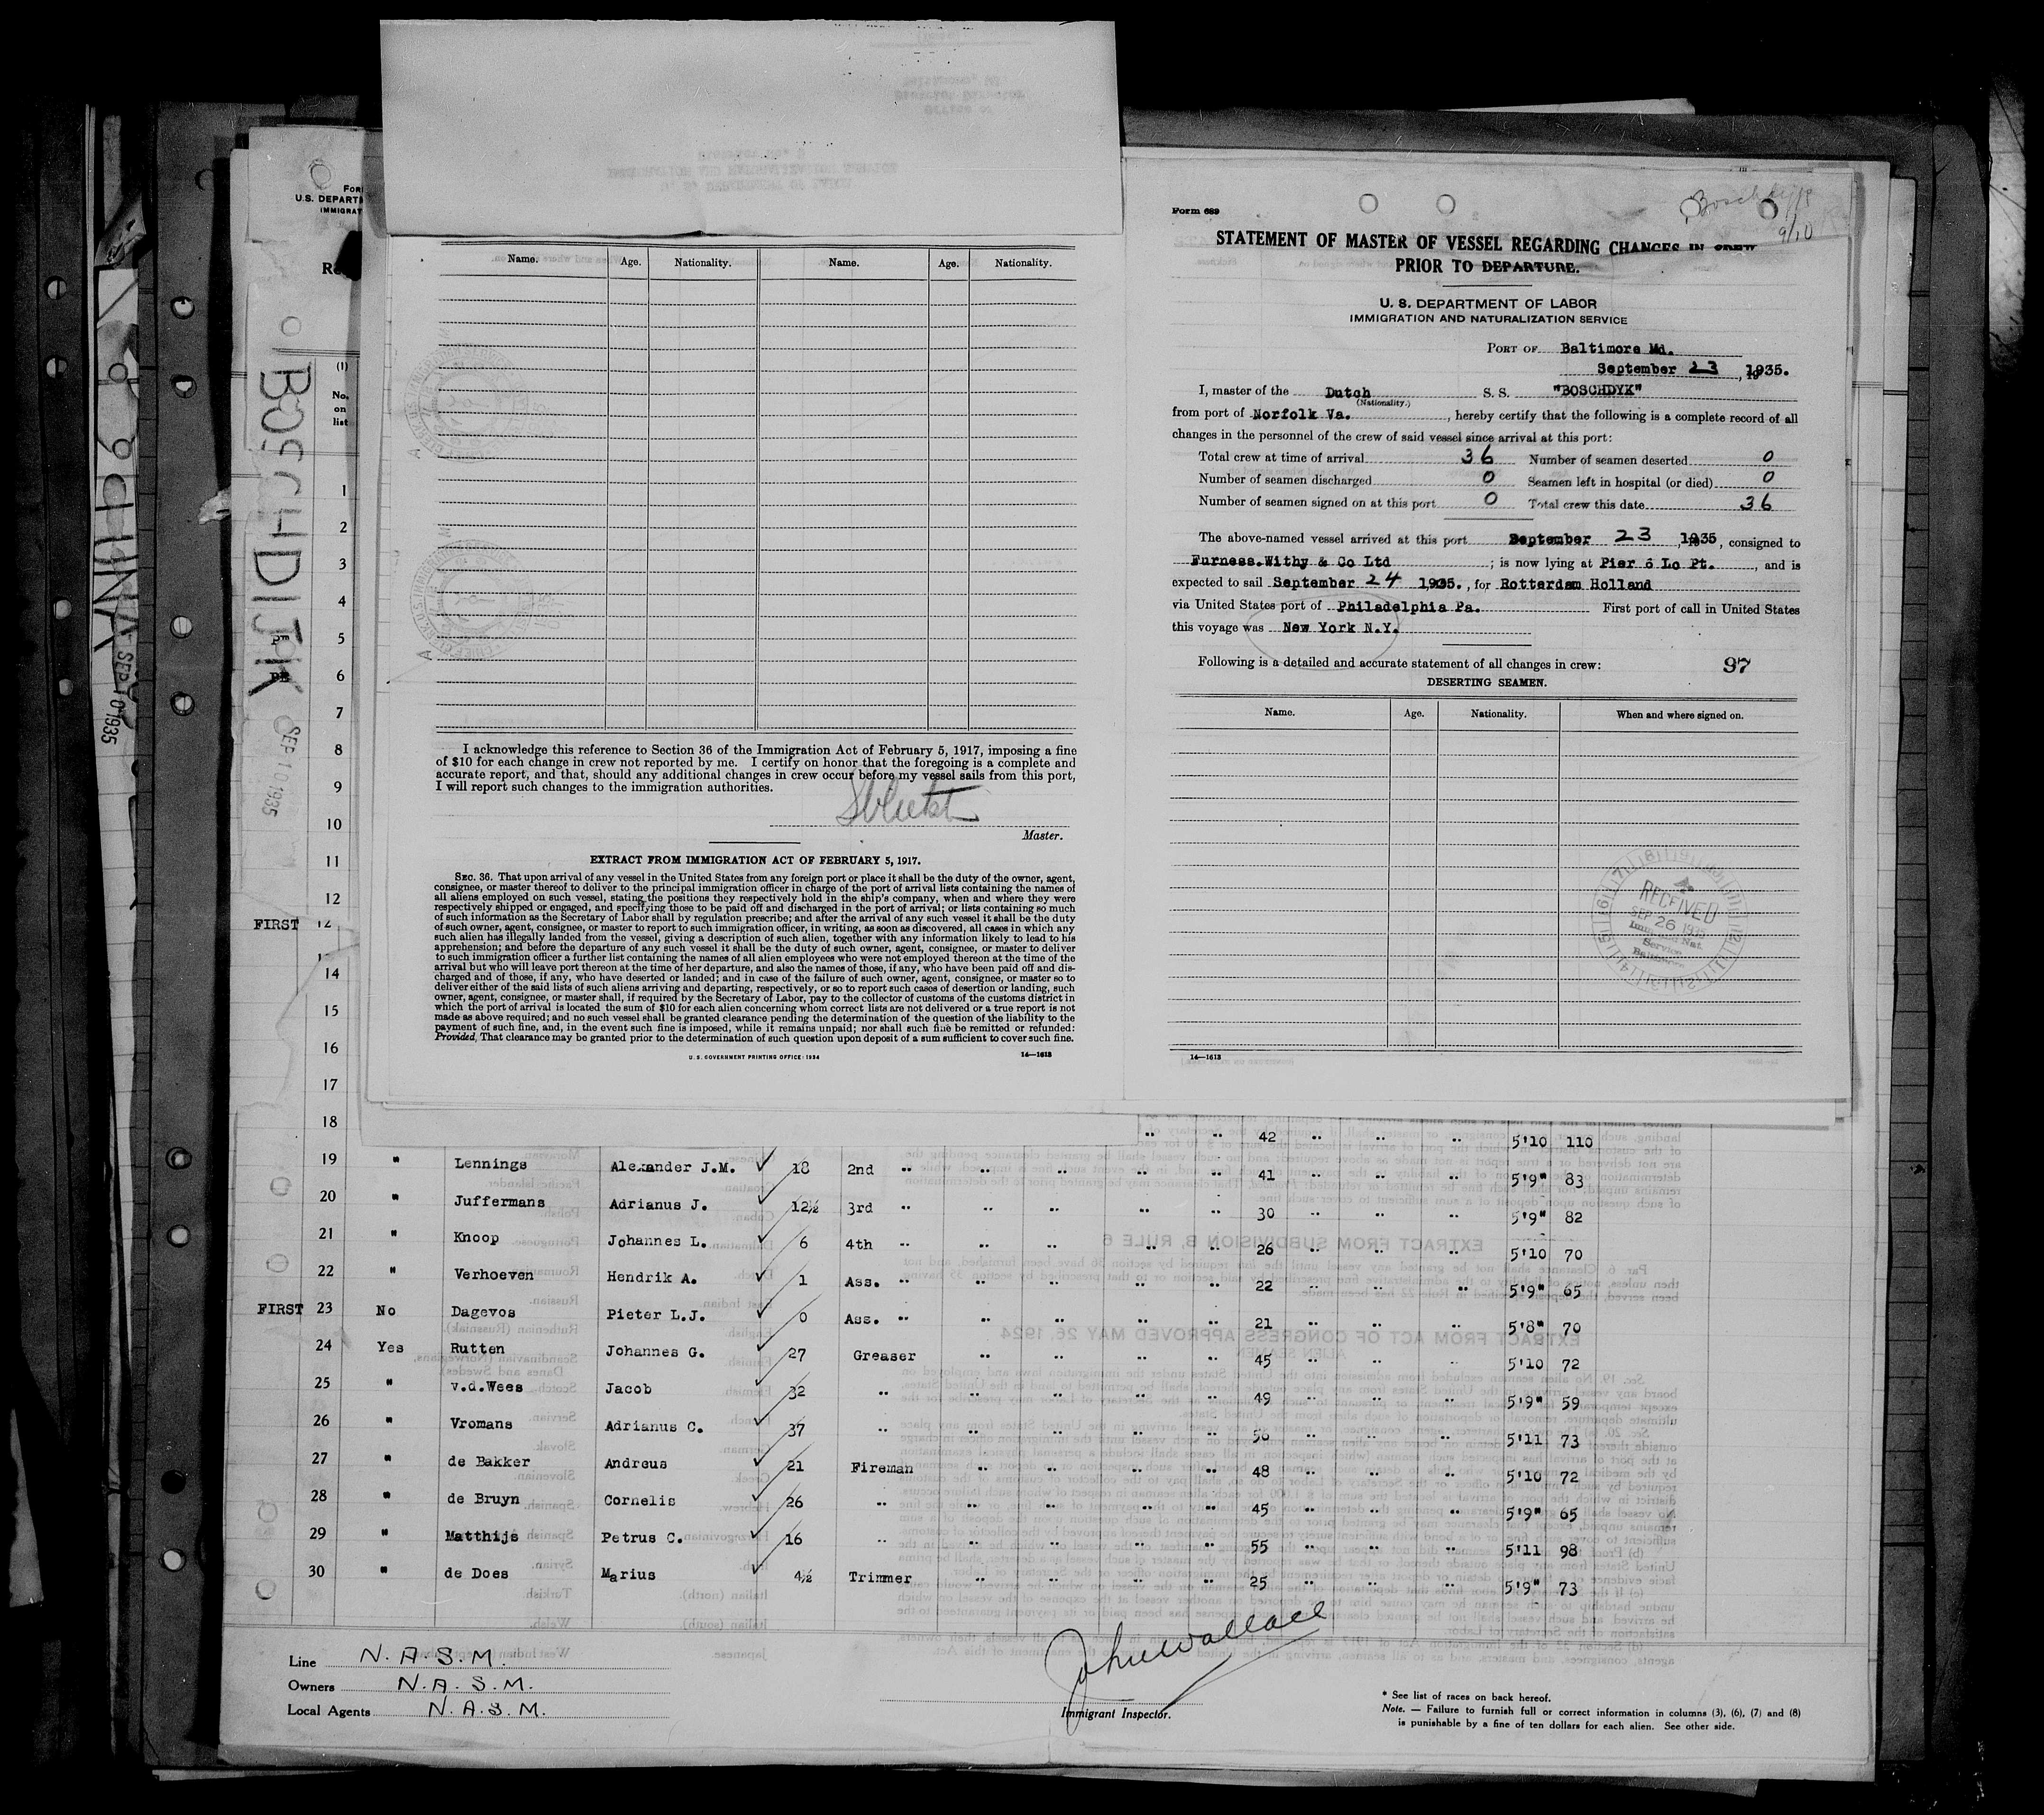 Form 689
Boschdijk
9/10
STATEMENT OF MASTER OF VESSEL REGARDING CHANGES IN CREW
PRIOR TO DEPARTURE.
U. S. DEPARTMENT OF LABOR
IMMIGRATION AND NATURALIZATION SERVICE
PORT OF Baltimore Md.
September 23, 1935.
I, master of the Dutch S. S. "BOSCHDYK"
(Nationality.)
from port of Norfolk Va., hereby certify that the following is a complete record of all
changes in the personnel of the crew of said vessel since arrival at this port:
Total crew at time of arrival 36 Number of seamen deserted 0
Number of seamen discharged 0 Seamen left in hospital (or died) 0
Number of seamen signed on at this port 0 Total crew this date 36
The above-named vessel arrived at this port September 23, 1935, consigned to
Furness.Withy & Co Ltd ; is now lying at Pier 6 Lo Pt. , and is
expected to sail September 24 1935., for Rotterdam Holland
via United States port of Philadelphia Pa. First port of call in United States
this voyage was New York N.Y.
Following is a detailed and accurate statement of all changes in crew: 97
DESERTING SEAMEN.
Name. Age. Nationality. When and where signed on.
RECEIVED
SEP 26 1935
14—1613
Name. Age. Nationality. Name. Age. Nationality.
I acknowledge this reference to Section 36 of the Immigration Act of February 5, 1917, imposing a fine
of $10 for each change in crew not reported by me. I certify on honor that the foregoing is a complete and
accurate report, and that, should any additional changes in crew occur before my vessel sails from this port,
I will report such changes to the immigration authorities.
Master.
EXTRACT FROM IMMIGRATION ACT OF FEBRUARY 5, 1917.
SEC. 36. That upon arrival of any vessel in the United States from any foreign port or place it shall be the duty of the owner, agent,
consignee, or master thereof to deliver to the principal immigration officer in charge of the port of arrival lists containing the names of
all aliens employed on such vessel, stating the positions they respectively hold in the ship's company, when and where they were
respectively shipped or engaged, and specifying those to be paid off and discharged in the port of arrival; or lists containing so much
of such information as the Secretary of Labor shall by regulation prescribe; and after the arrival of any such vessel it shall be the duty
of such owner, agent, consignee, or master to report to such immigration officer, in writing, as soon as discovered, all cases in which any
such alien has illegally landed from the vessel, giving a description of such alien, together with any information likely to lead to his
apprehension; and before the departure of any such vessel it shall be the duty of such owner, agent, consignee, or master to deliver
to such immigration officer a further list containing the names of all alien employees who were not employed thereon at the time of the
arrival but who will leave port thereon at the time of her departure, and also the names of those, if any, who have been paid off and dis-
charged and of those, if any, who have deserted or landed; and in case of the failure of such owner, agent, consignee, or master so to
deliver either of the said lists of such aliens arriving and departing, respectively, or so to report such cases of desertion or landing, such
owner, agent, consignee, or master shall, if required by the Secretary of Labor, pay to the collector of customs of the customs district in
which the port of arrival is located the sum of $10 for each alien concerning whom correct lists are not delivered or a true report is not
made as above required; and no such vessel shall be granted clearance pending the determination of the question of the liability to the
payment of such fine, and, in the event such fine is imposed, while it remains unpaid; nor shall such fine be remitted or refunded:
Provided, That clearance may be granted prior to the determination of such question upon deposit of a sum sufficient to cover such fine.
U. S. GOVERNMENT PRINTING OFFICE: 1934 14—1613
U.S. DEPART
IMMIGRAT
BOSCHDIJK
SEP 10 1935
SEP 10 1935
(1)
No.
on
list
1
2
3
4
5
6
7
8
9
10
11
12
FIRST
14
15
16
17
18 " " 42 " " " 5'10 110
19 " Lennings Alexander J.M. ✓ 18 2nd " " " " " 41 " " " 5'9" 83
20 " Juffermans Adrianus J. ✓ 12½ 3rd " " " " " 30 " " " 5'9" 82
21 " Knoop Johannes L. ✓ 6 4th " " " " " 26 " " " 5'10 70
22 " Verhoeven Hendrik A. ✓ 1 Ass. " " " " " 22 " " " 5'9" 65
FIRST 23 No Dagevos Pieter L.J. ✓ 0 Ass. " " " " " 21 " " " 5'8" 70
24 Yes Rutten Johannes G. ✓ 27 Greaser " " " " 45 " " " 5'10 72
25 " v.d.Wees Jacob ✓ 32 " " " " " 49 " " " 5'9" 59
26 " Vromans Adrianus C. ✓ 37 " " " " " 56 " " " 5'11 73
27 " de Bakker Andreus ✓ 21 Fireman " " " " 48 " " " 5'10 72
28 " de Bruyn Cornelis ✓ 26 " " " " " 45 " " " 5'9" 65
29 " Matthijs Petrus C. ✓ 16 " " " " " 55 " " " 5'11 98
30 " de Does Marius ✓ 4½ Trimmer " " " " 25 " " " 5'9" 73
Line N.A.S.M.
Owners N.A.S.M.
Local Agents N.A.S.M.
John Wallace
Immigrant Inspector.
* See list of races on back hereof.
Note. — Failure to furnish full or correct information in columns (3), (6), (7) and (8)
is punishable by a fine of ten dollars for each alien. See other side.